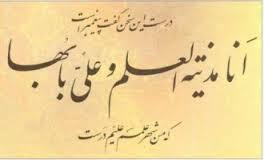 درست این سخن گفت پیغمبرست
انا مدینة العلم و علیّ بابها
که من شهر علمم علیم درست